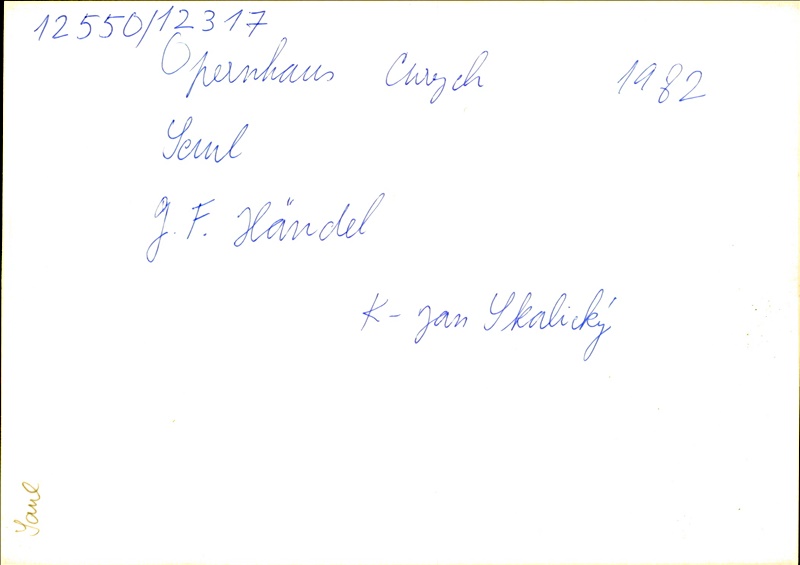 12550/12317
Opernhaus Curych 1982
Saul
G. F. Händel
K- Jan Skalický
Saul